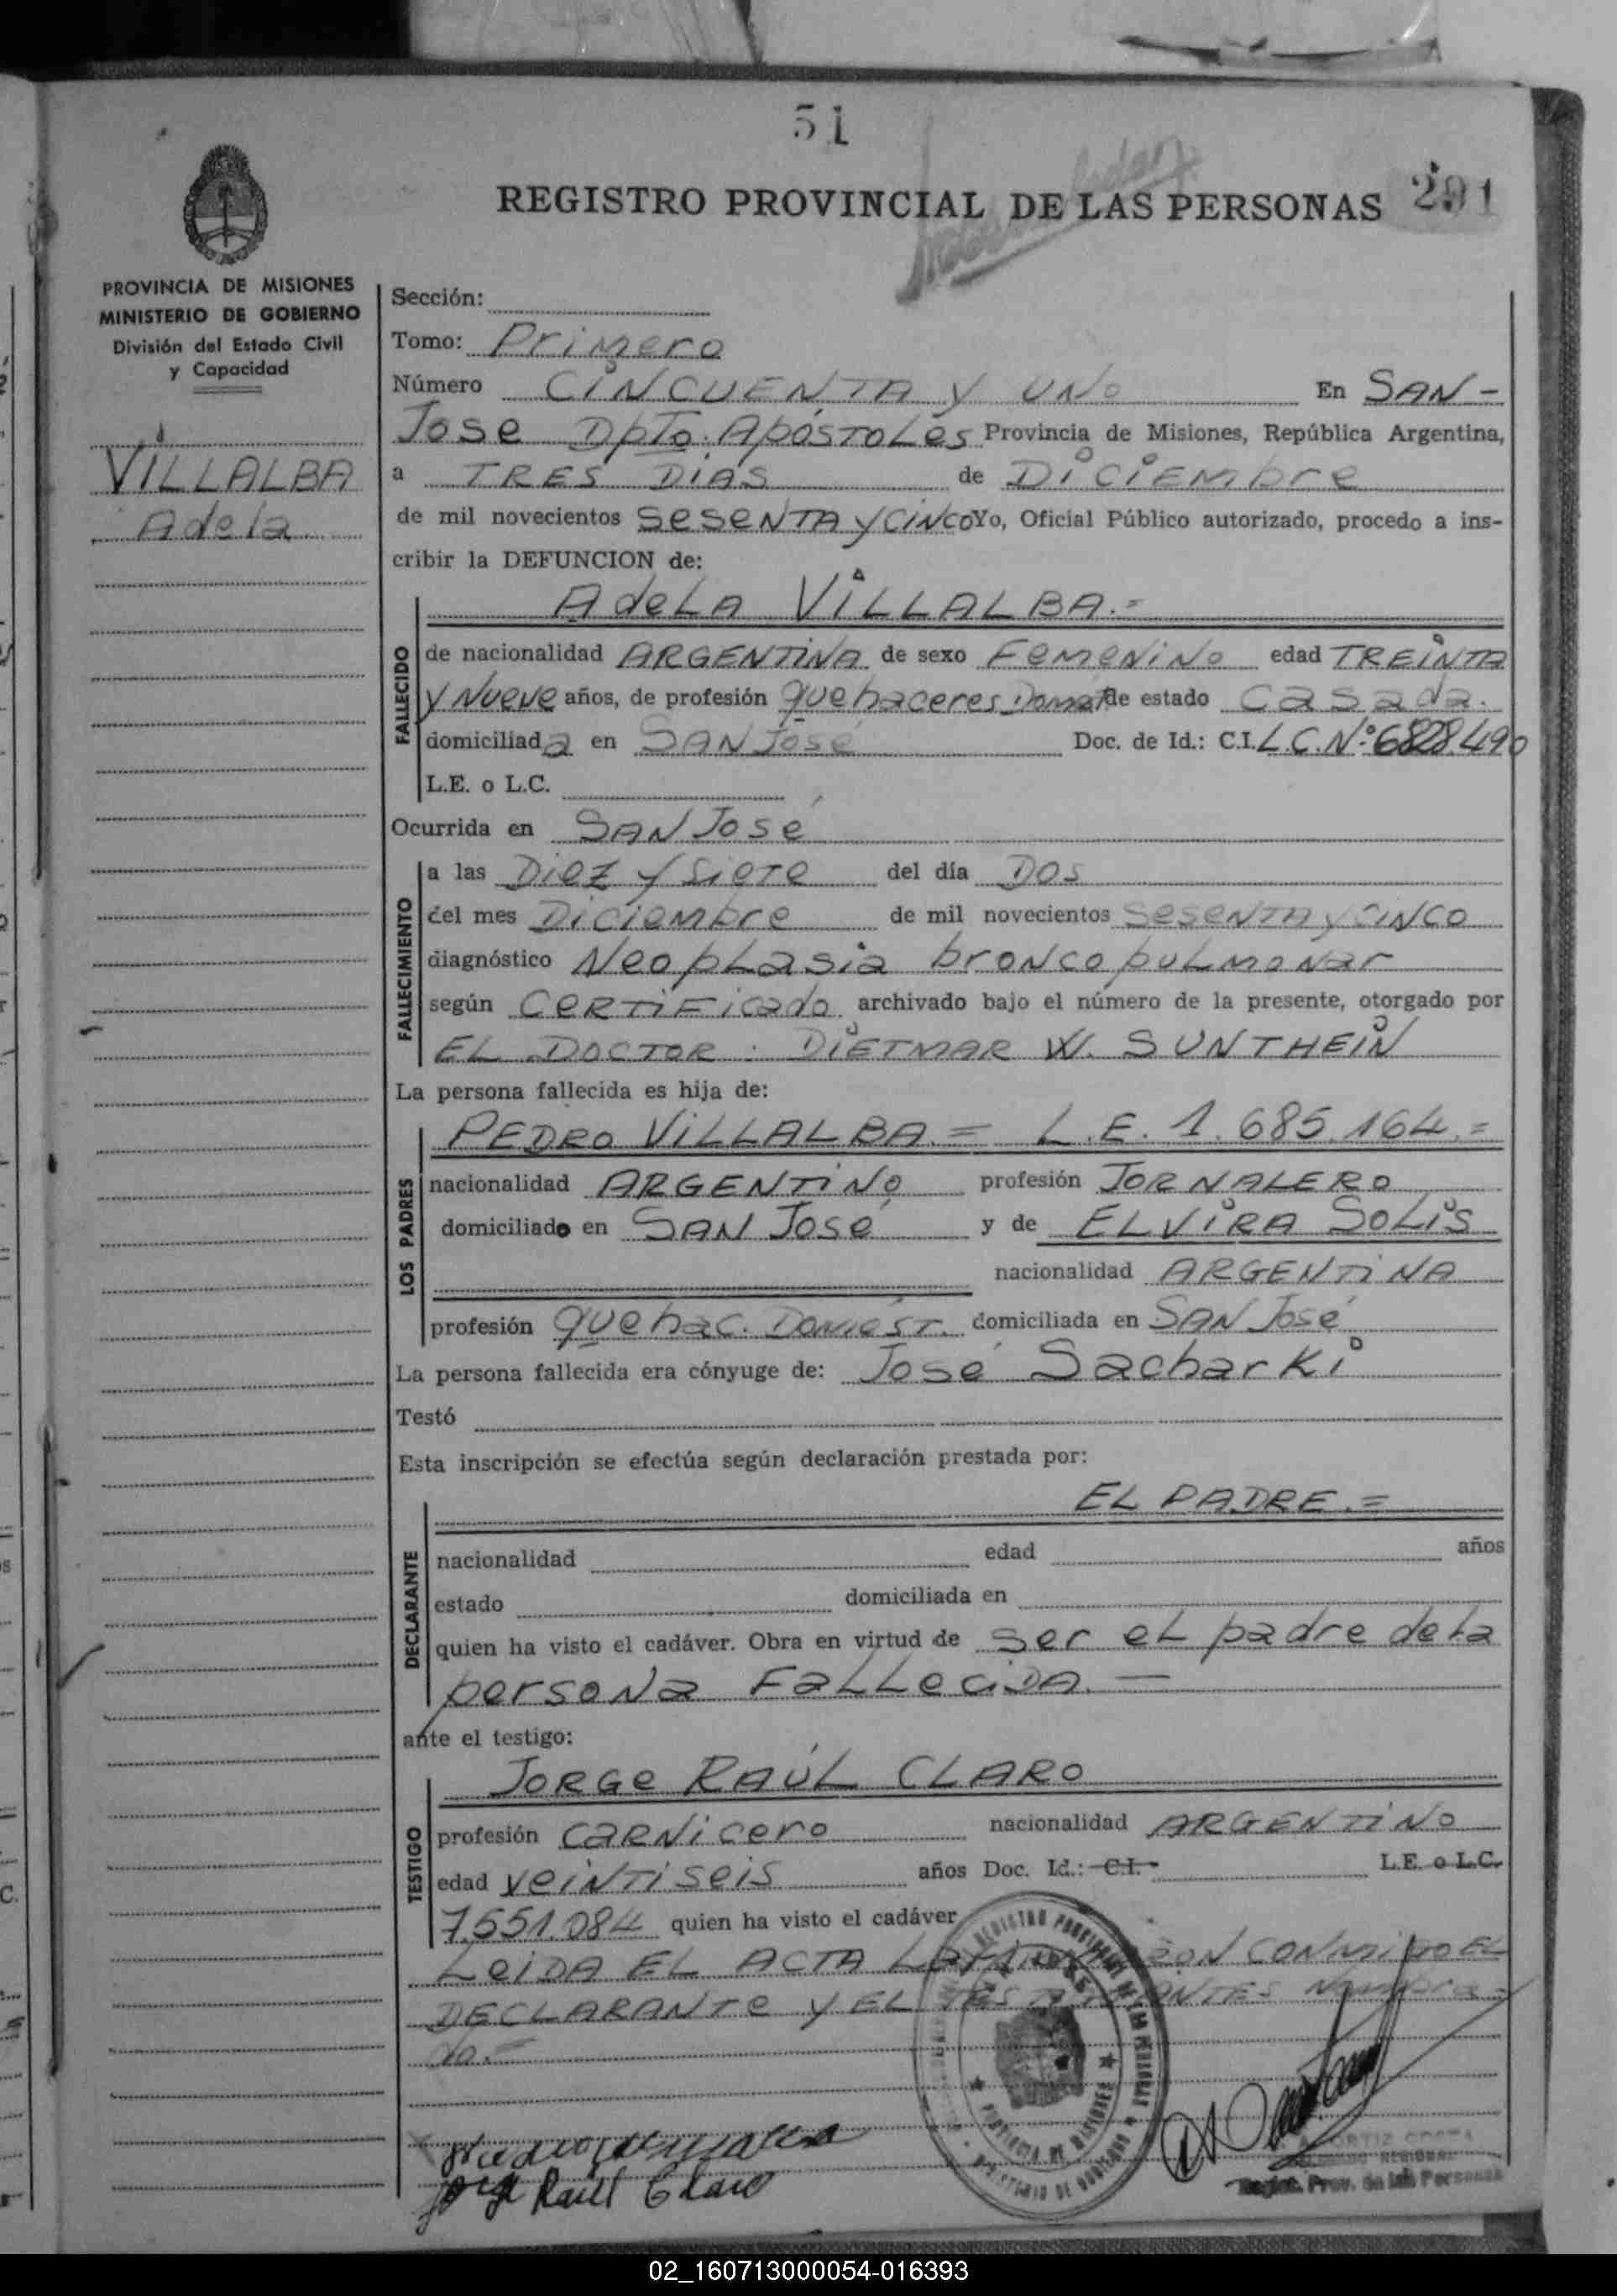 51
REGISTRO PROVINCIAL DE LAS PERSONAS 291
PROVINCIA DE MISIONES
MINISTERIO DE GOBIERNO
División del Estado Civil
y Capacidad
VILLALBA
Adela
Sección:
Tomo: Primero
Número CINCUENTA y UNO En SAN-
Jose Dpto. Apóstoles Provincia de Misiones, República Argentina,
a TRES DIAS de Diciembre
de mil novecientos SESENTA y CINCO Yo, Oficial Público autorizado, procedo a ins-
cribir la DEFUNCION de:
Adela VILLALBA.=
FALLECIDO
de nacionalidad ARGENTINA de sexo Femenino edad TREINTA
y Nueve años, de profesión quehaceres Domest de estado casada.
domiciliada en SAN José Doc. de Id.: C.I. L.C. Nº 6828.490
L.E. o L.C.
Ocurrida en SAN José
FALLECIMIENTO
a las Diez y Siete del día DOS
del mes Diciembre de mil novecientos SESENTA y CINCO
diagnóstico Neoplasia broncopulmonar
según Certificado archivado bajo el número de la presente, otorgado por
EL DOCTOR: DIETMAR W. SUNTHEIN
La persona fallecida es hija de:
LOS PADRES
PEDRO VILLALBA= L.E. 1.685.164.=
nacionalidad ARGENTINO profesión JORNALERO
domiciliado en SAN José y de ELVIRA SOLIS
nacionalidad ARGENTINA
profesión quehac. DOMÉST. domiciliada en SAN José
La persona fallecida era cónyuge de: José Sacharki
Testó
Esta inscripción se efectúa según declaración prestada por:
DECLARANTE
EL PADRE.=
nacionalidad edad años
estado domiciliada en
quien ha visto el cadáver. Obra en virtud de ser el padre de la
persona Fallecida.—
ante el testigo:
TESTIGO
JORGE RAÚL CLARO
profesión carnicero nacionalidad ARGENTINO
edad veintiseis años Doc. Id.: C.I. L.E. o L.C.
7.551.084 quien ha visto el cadáver
Leida EL ACTA CONMIGO EL
DECLARANTE y EL Nombra-
do.=
Jorge Raúl Claro
REGISTRO PROVINCIAL DE LAS PERSONAS
PROVINCIA DE MISIONES
MINISTERIO DE GOBIERNO
ORTIZ COSTA
Regist. Prov. de las Personas
02_160713000054-016393